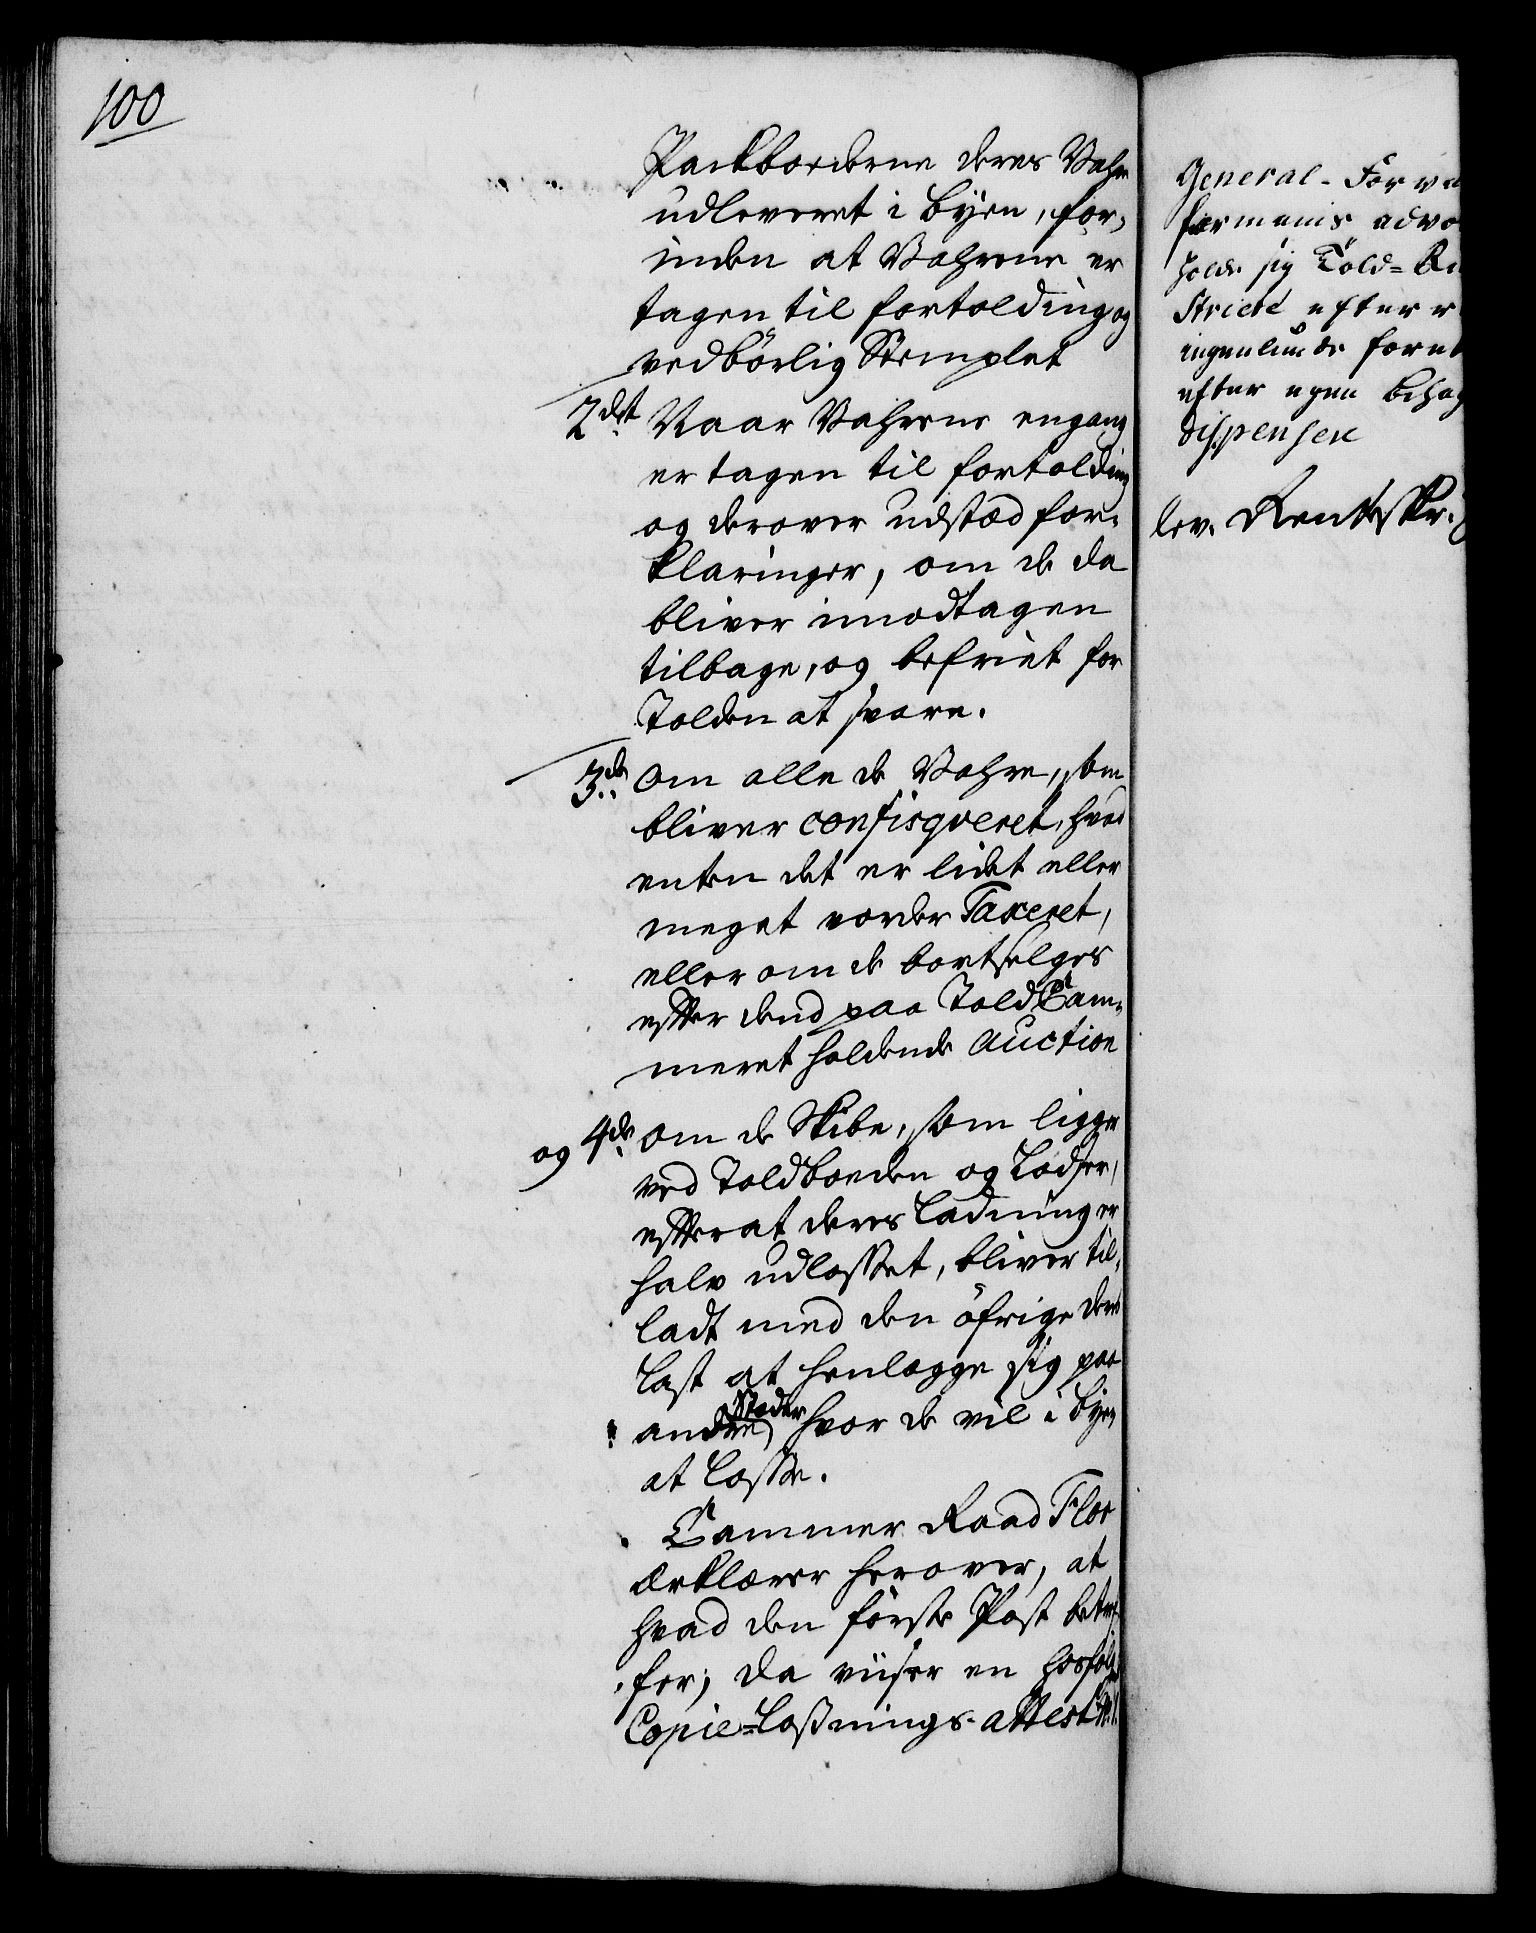 100
Packboederne deres Vahre
udleveret i Byen, for¬
inden at Vahrene er
tagen til fortolding og
vedbörlig Stemplet
2det Naar Vahrene engang
er tagen til fortolding
og derover udstæd for¬
klaringer, om de da
bliver imodtagen
tilbage, og befriet for
Tolden at svare.
3de Om alle de Vahre, som
bliver confisqveret, hvad
enten det er lidet eller
meget vorder Taxeret,
eller om de bortselges
efter dend paa Told Cam¬
meret holdende Auction
og 4de Om de Skibe, som ligger
ved Toldboeden og Losser,
efter at deres Ladning er
halv udlosset, bliver til¬
ladt med den öfrige deres
Last at henlegge sig paa
andre Steder hvor de vil i Byen
at Losse.
Cammer Raad Flor
erklærer herover, at
hvad den förste Post betref¬
fer; da viiser en hosfölgende
Copie-Lossnings-attest N. 1.
General-Forva
formanis advo
holde sig Told-
Stricte efter
ingenlunde foret
efter egen Behag
dispensere
lev. Renteskr.